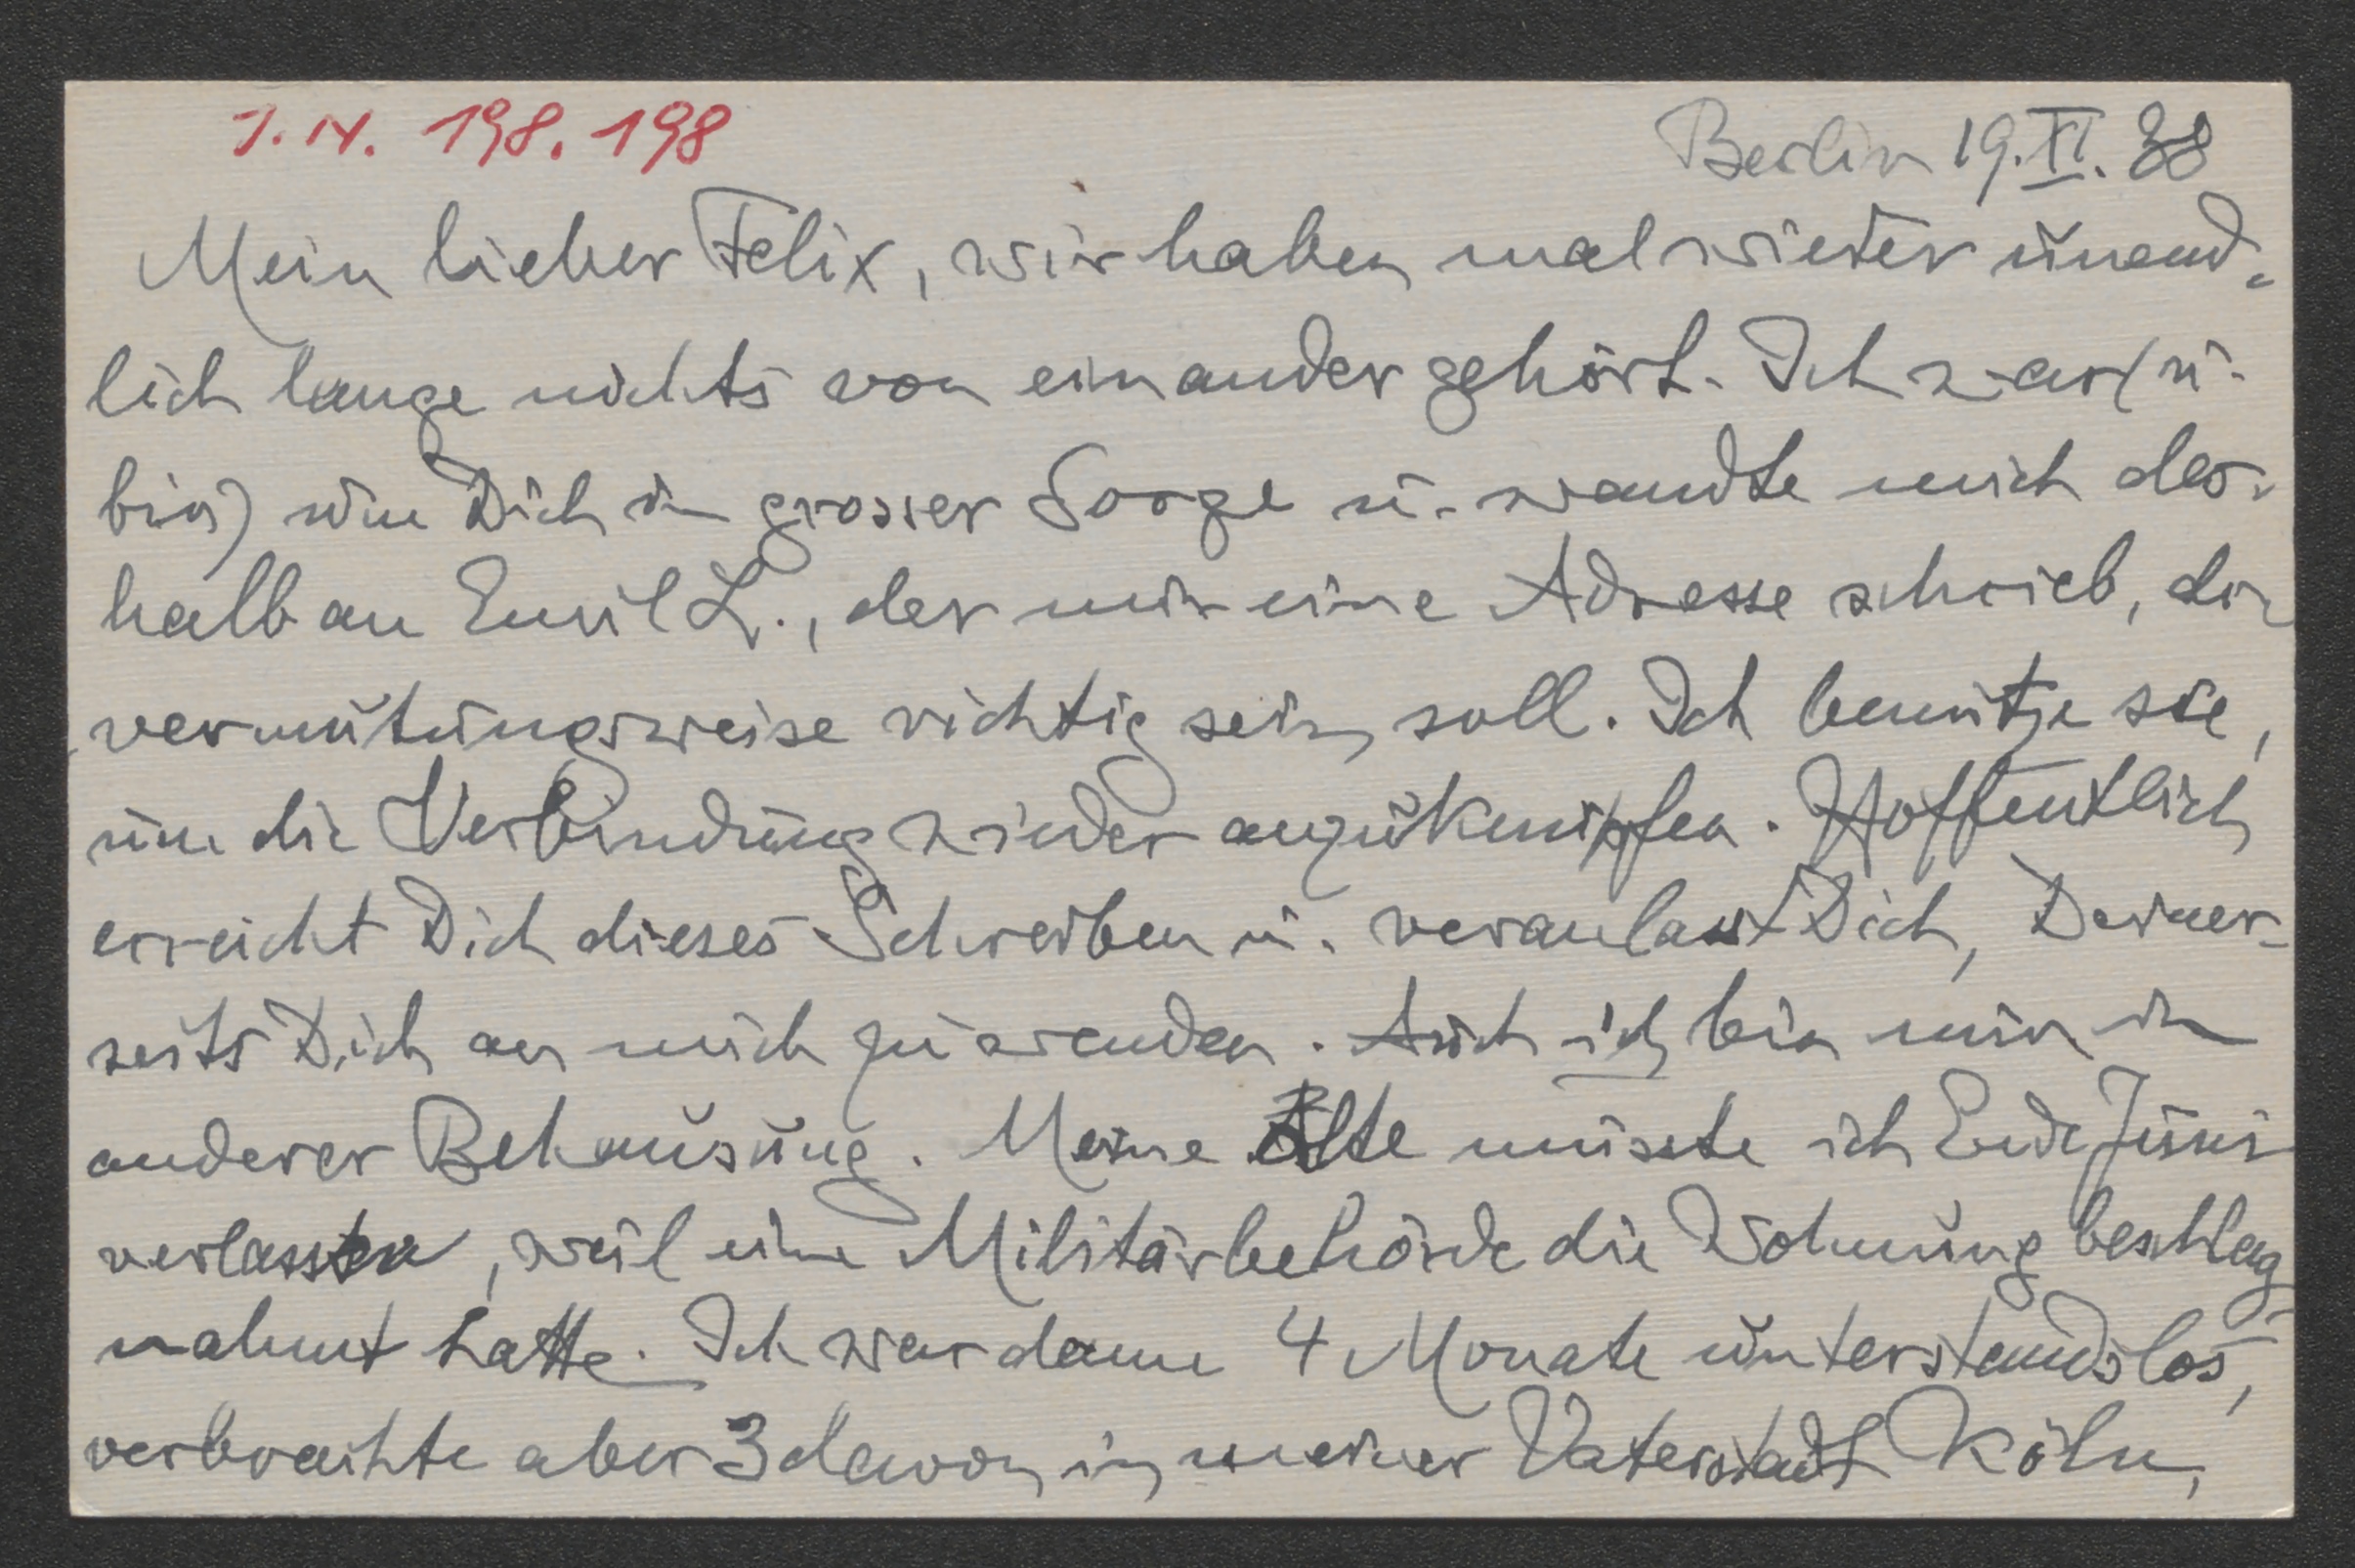 I. N. 198.198
Berlin 19.XI.38
Mein lieber Felix, wir haben mal wieder unend-
lich lange nichts von einander gehört. Ich war (u.
bin) um Dich in grosser Sorge u. wandte mich des-
halb an Emil L., der mir eine Adresse schrieb, die
vermutungsweise richtig sein soll. Ich benutze sie,
um die Verbindung wieder anzuknüpfen. Hoffentlich
erreicht Dich dieses Schreiben u. veranlasst Dich, Deiner-
seits Dich an mich zu wenden. Auch ich bin nun in
anderer Behausung. Meine Alte musste ich Ende Juni
verlassen, weil eine Militärbehörde die Wohnung beschlag-
nahmt hatte. Ich war dann 4 Monate unterstandslos,
verbrachte aber 3 davon in meiner Vaterstadt Köln,